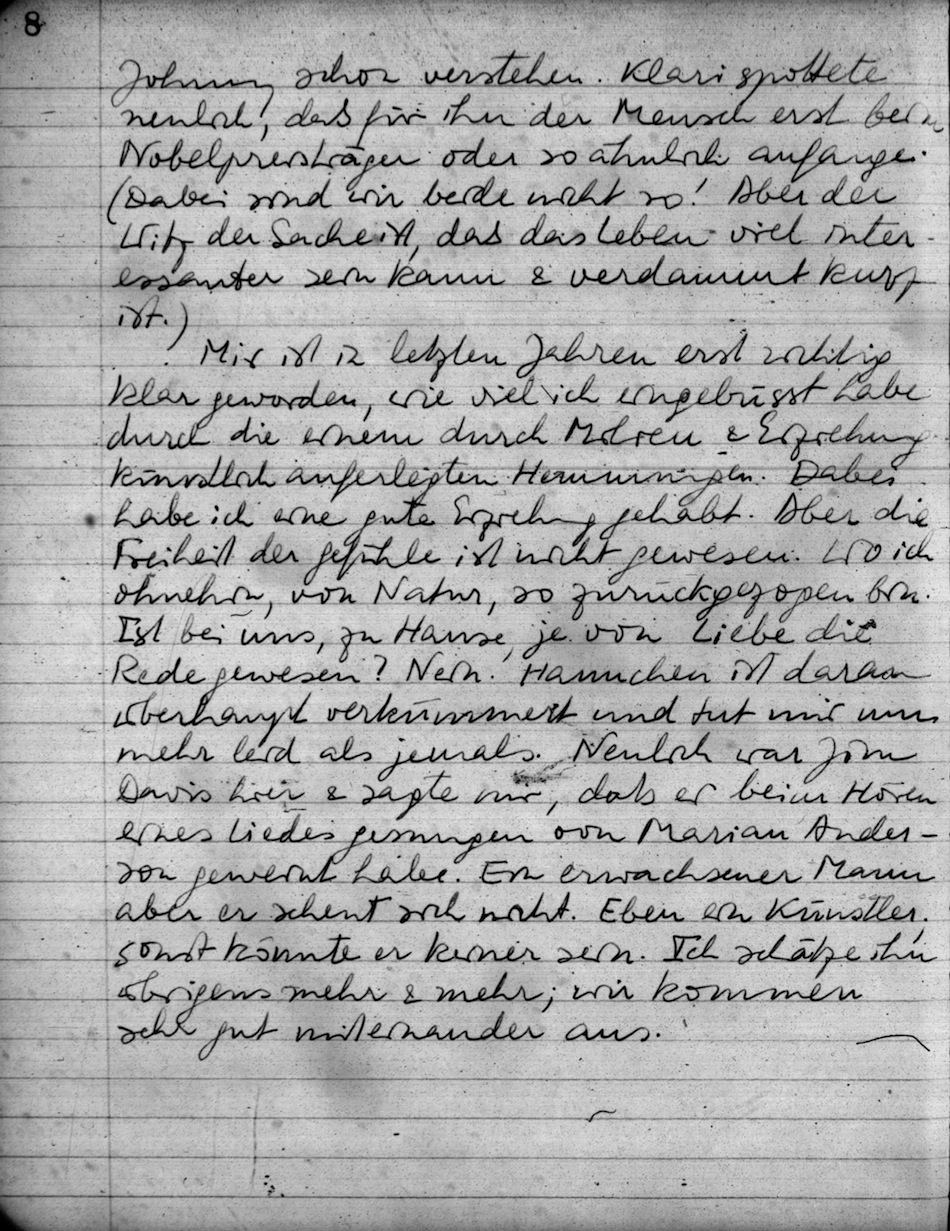 8
Johnny schon verstehen. Klari spottete
neulich, daß für ihn der Mensch erst beim
Nobelpreisträger oder so ähnlich anfange.
(Dabei sind wir beide nicht so! Aber der
Witz der Sache ist, das das Leben viel inter-
essanter sein kann & verdammt kurz
ist.)
Mir ist in letzten Jahren erst richtig
klar geworden, wie viel ich eingebüsst habe
durch die einem durch Milieu & Erziehung
künstlich auferlegten Hemmungen. Dabei
habe ich eine gute Erziehung gehabt. Aber die
Freiheit der gefühle ist nicht gewesen. Wo ich
ohnehin, von Natur, so zurückgezogen bin.
Ist bei uns, zu Hause, je von Liebe die
Rede gewesen? Nein. Hannchen ist daran
überhaupt verkümmert und tut mir um
mehr leid als jemals. Neulich war Jim
Davis hier & sagte mir, daß er beim Hören
eines Liedes gesungen von Marian Ander-
son geweint habe. Ein erwachsener Mann
aber er scheut sich nicht. Eben ein Künstler,
sonst könnte er keiner sein. Ich schätze ihn
übrigens mehr & mehr; wir kommen
sehr gut miteinander aus.